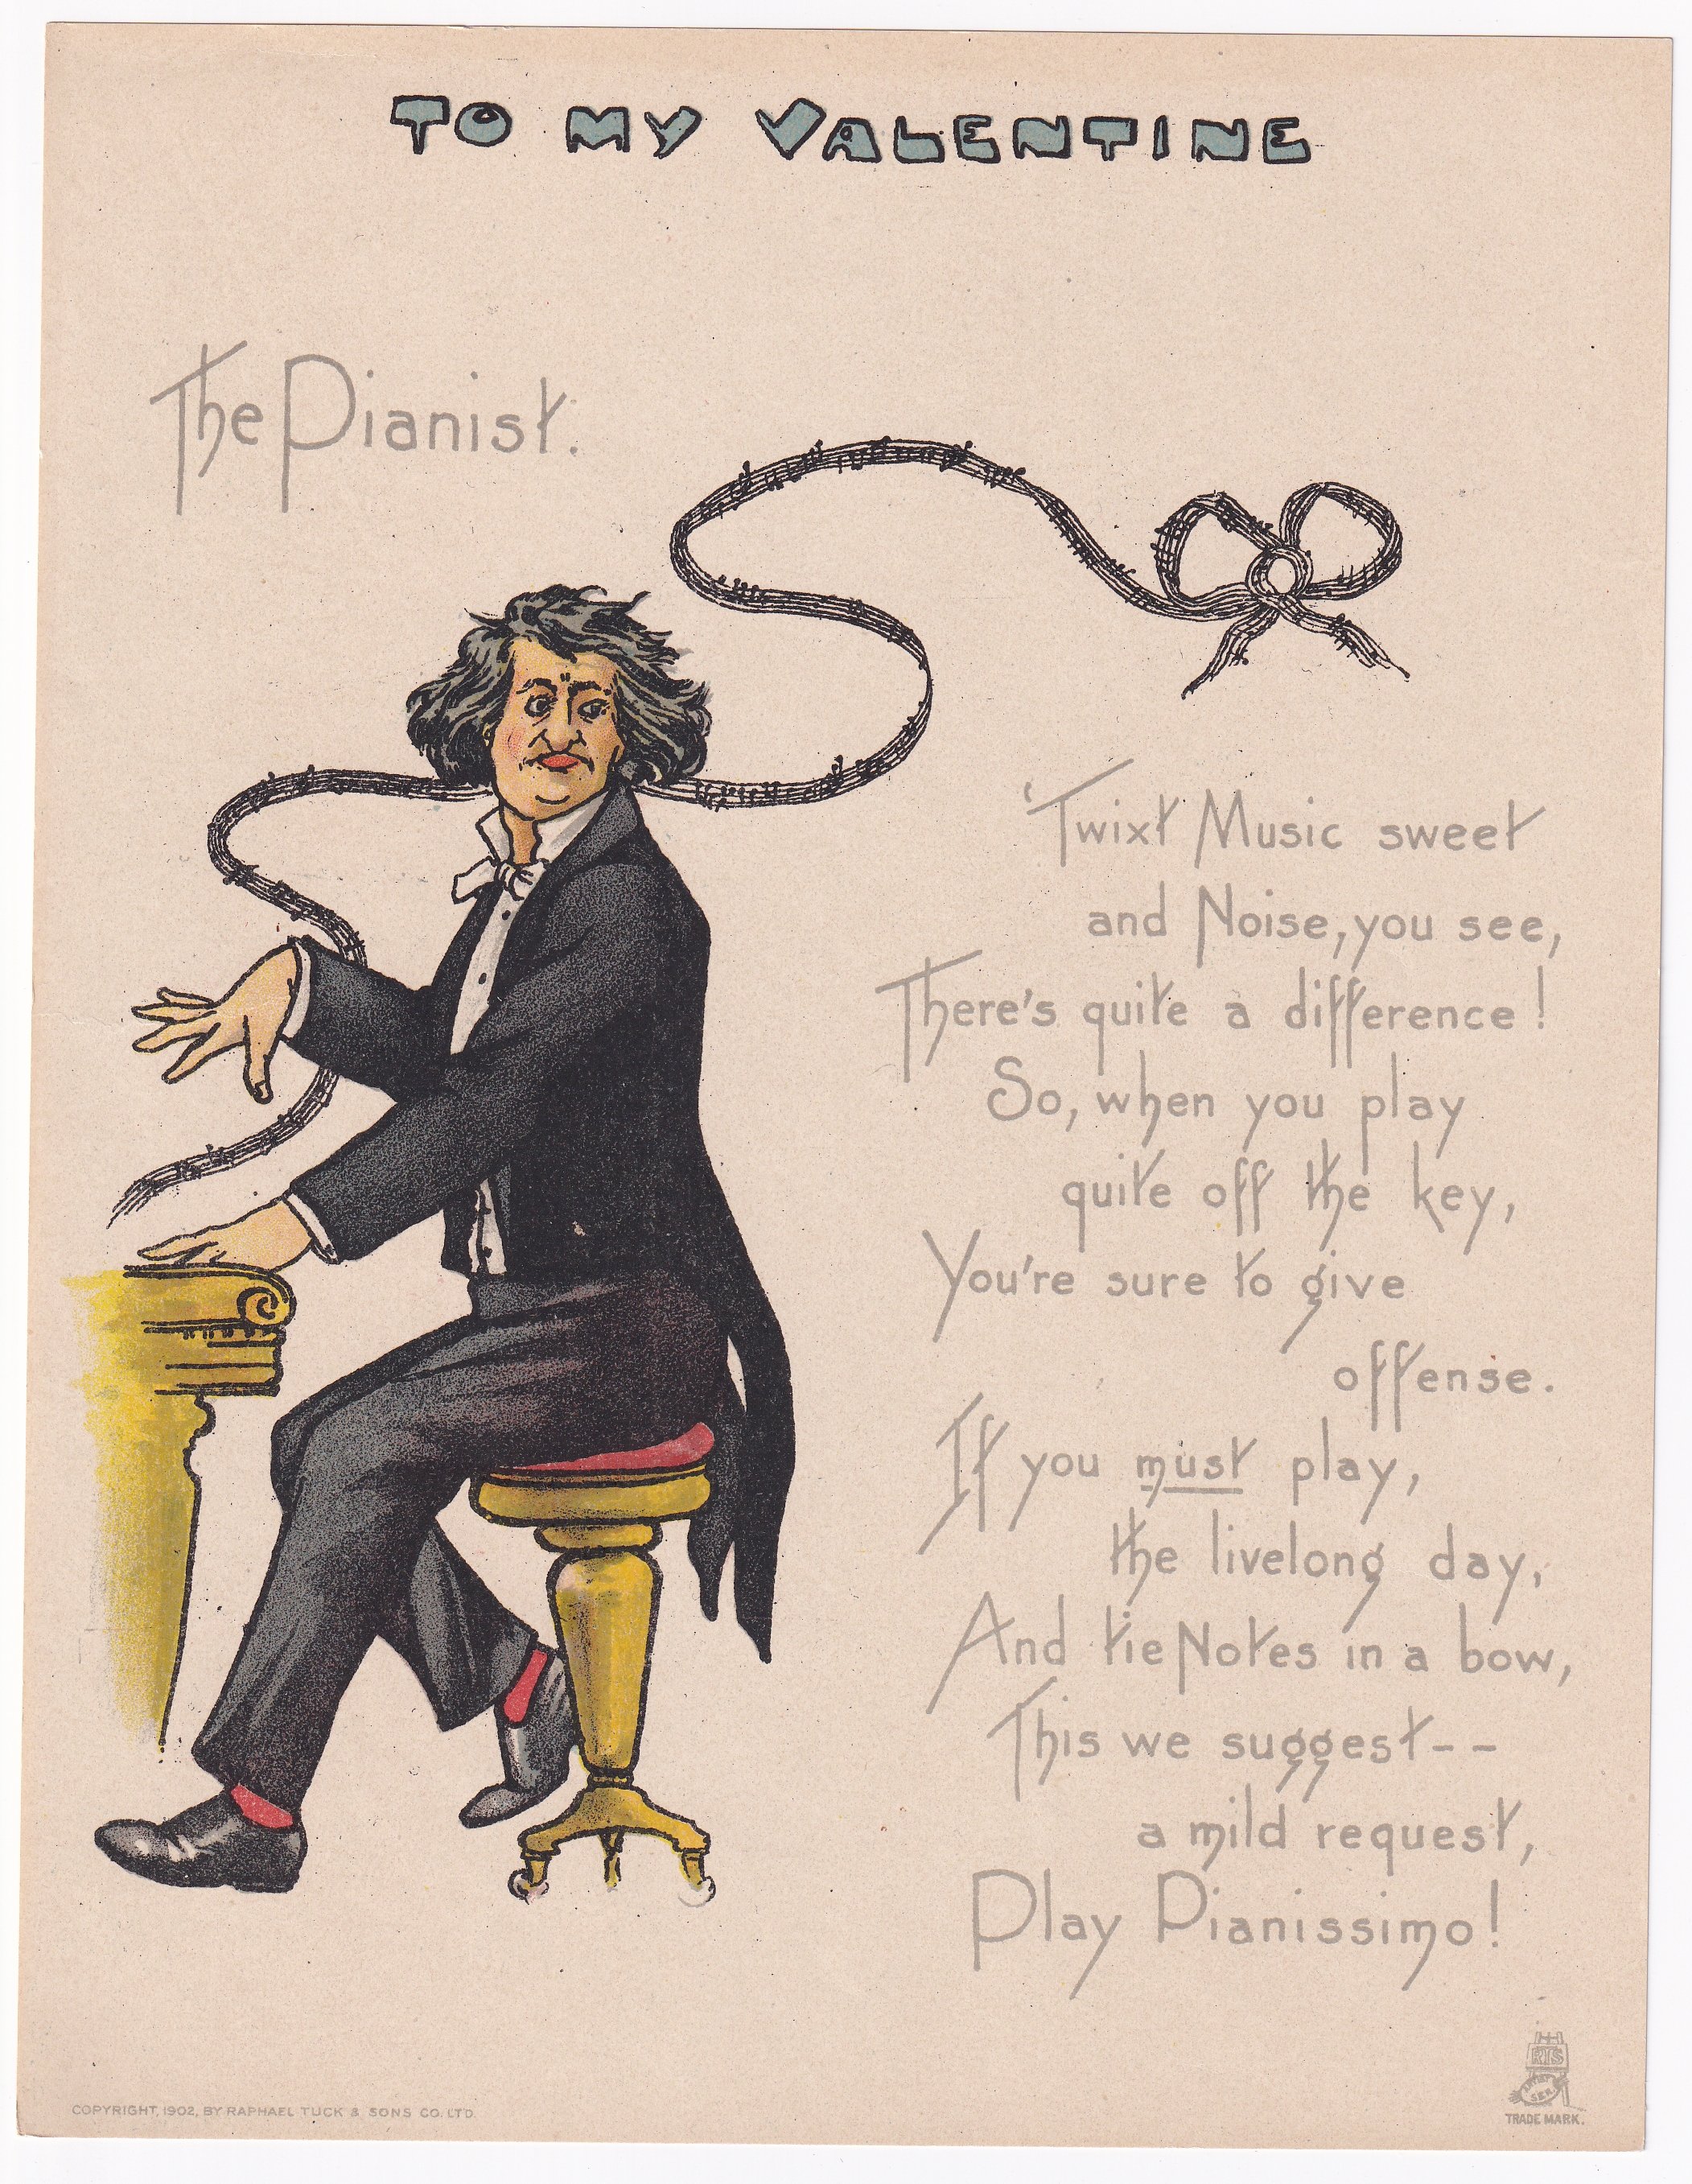 TO MY VALENTINE
The Pianist.
'Twixt Music sweet
and Noise, you see,
There's quite a difference!
So, when you play
quite off the key,
You're sure to give
offense.
If you must play,
the livelong day,
And tie Notes in a bow,
This we suggest--
a mild request,
Play Pianissimo!
RTS
ARTIST
SER.
TRADE MARK.
COPYRIGHT, 1902, BY RAPHAEL TUCK & SONS CO. LTD.